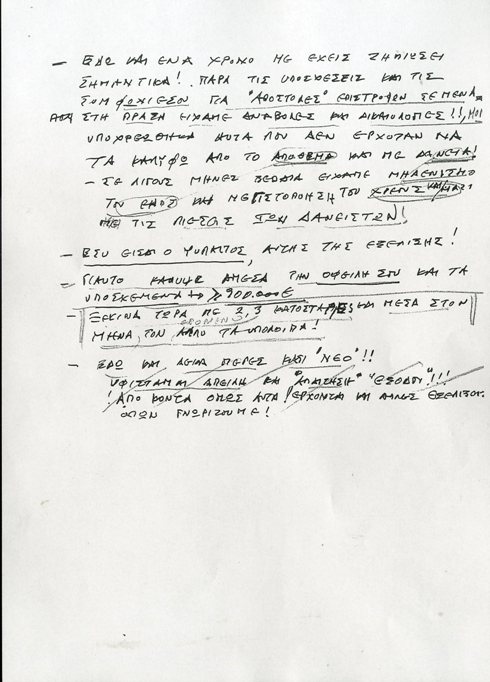 – ΕΔΩ ΚΑΙ ΕΝΑ ΧΡΟΝΟ ΜΕ ΕΧΕΙΣ ΖΗΜΙΩΣΕΙ
ΣΗΜΑΝΤΙΚΑ! ΠΑΡΑ ΤΙΣ ΥΠΟΣΧΕΣΕΙΣ ΚΑΙ ΤΙΣ
ΓΙΑ "ΑΠΟΣΤΟΛΕΣ" ΕΠΙΣΤΡΟΦΩΝ ΣΕ ΜΕΝΑ,
ΣΤΗ ΠΡΑΞΗ ΕΙΧΑΜΕ ΑΝΑΒΟΛΕΣ ΚΑΙ ΔΙΚΑΙΟΛΟΓΙΕΣ!!,
ΑΥΤΑ ΠΟΥ ΔΕΝ ΕΡΧΟΤΑΝ ΝΑ
ΤΑ ΚΑΛΥΦΩ ΑΠΟ ΤΟ ΑΠΟΘΕΜΑ ΚΑΙ ΜΕ ΔΑΝΕΙΑ!
– ΣΕ ΛΙΓΟΥΣ ΜΗΝΕΣ ΕΙΧΑΜΕ ΜΗΔΕΝΙΣΜΟ
ΤΟΥ ΚΑΙ ΜΕΓΙΣΤΟΠΟΙΗΣΗ ΤΟΥ ΧΡΕΟΥΣ
ΜΕ ΤΙΣ ΠΙΕΣΕΙΣ ΤΩΝ ΔΑΝΕΙΣΤΩΝ!
– ΕΣΥ ΕΙΣΑΙ Ο ΥΠΑΙΤΙΟΣ, ΑΥΤΗΣ ΤΗΣ ΕΞΕΛΙΞΗΣ!
– ΓΙ'ΑΥΤΟ ΚΑΛΥΨΕ ΑΜΕΣΑ ΤΗΝ ΟΦΕΙΛΗ ΣΟΥ ΚΑΙ ΤΑ
ΥΠΟΣΧΕΜΕΝΑ 900.000€
– ΞΕΚΙΝΑ ΤΩΡΑ ΜΕ 2, 3 ΚΑΤΟΣΤΑΡΕΣ ΚΑΙ ΜΕΣΑ ΣΤΟΝ
ΜΗΝΑ ΤΟΝ ΑΛΛΟ ΤΑ ΥΠΟΛΟΙΠΑ!
– ΕΔΩ ΚΑΙ ΜΕΡΕΣ ΚΑΤΙ "ΝΕΟ"!!
ΥΦΙΣΤΑΜΑΙ ΑΠΕΙΛΗ ΚΑΙ "ΑΠΑΙΤΗΣΗ" "ΕΞΟΔΟΥ"!!!
! ΑΠΟ ΚΟΝΤΑ ΟΜΩΣ ΑΥΤΑ! ΕΡΧΟΝΤΑΙ ΚΑΙ ΑΛΛΕΣ ΕΞΕΛΙΞΕΙΣ
ΟΠΩΣ ΓΝΩΡΙΖΟΥΜΕ!